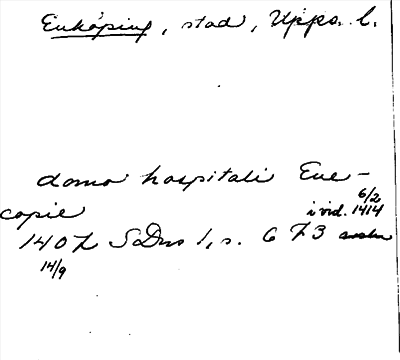 Enköping, stad, Upps. l.
domo hospitali Ene-
6/2
copie i vid. 1414
1407 SDns 1, s. 673
14/9